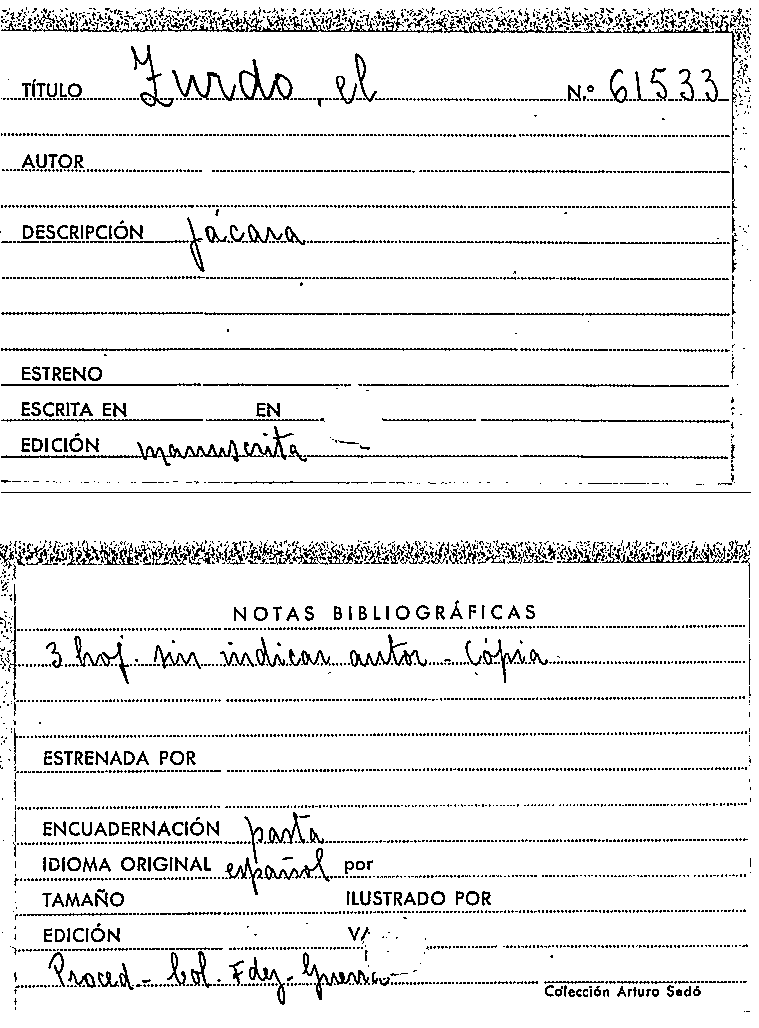 TÍTULO Zurdo, el N.º 61533
AUTOR
DESCRIPCIÓN Jácara
ESTRENO
ESCRITA EN EN
EDICIÓN manuscrita —
NOTAS BIBLIOGRÁFICAS
3 hoj. sin indicar autor - Cópia
ESTRENADA POR
ENCUADERNACIÓN pasta
IDIOMA ORIGINAL español por
TAMAÑO ILUSTRADO POR
EDICIÓN V/
Proced - Col. Fdez - Guerra
Colección Arturo Sedó